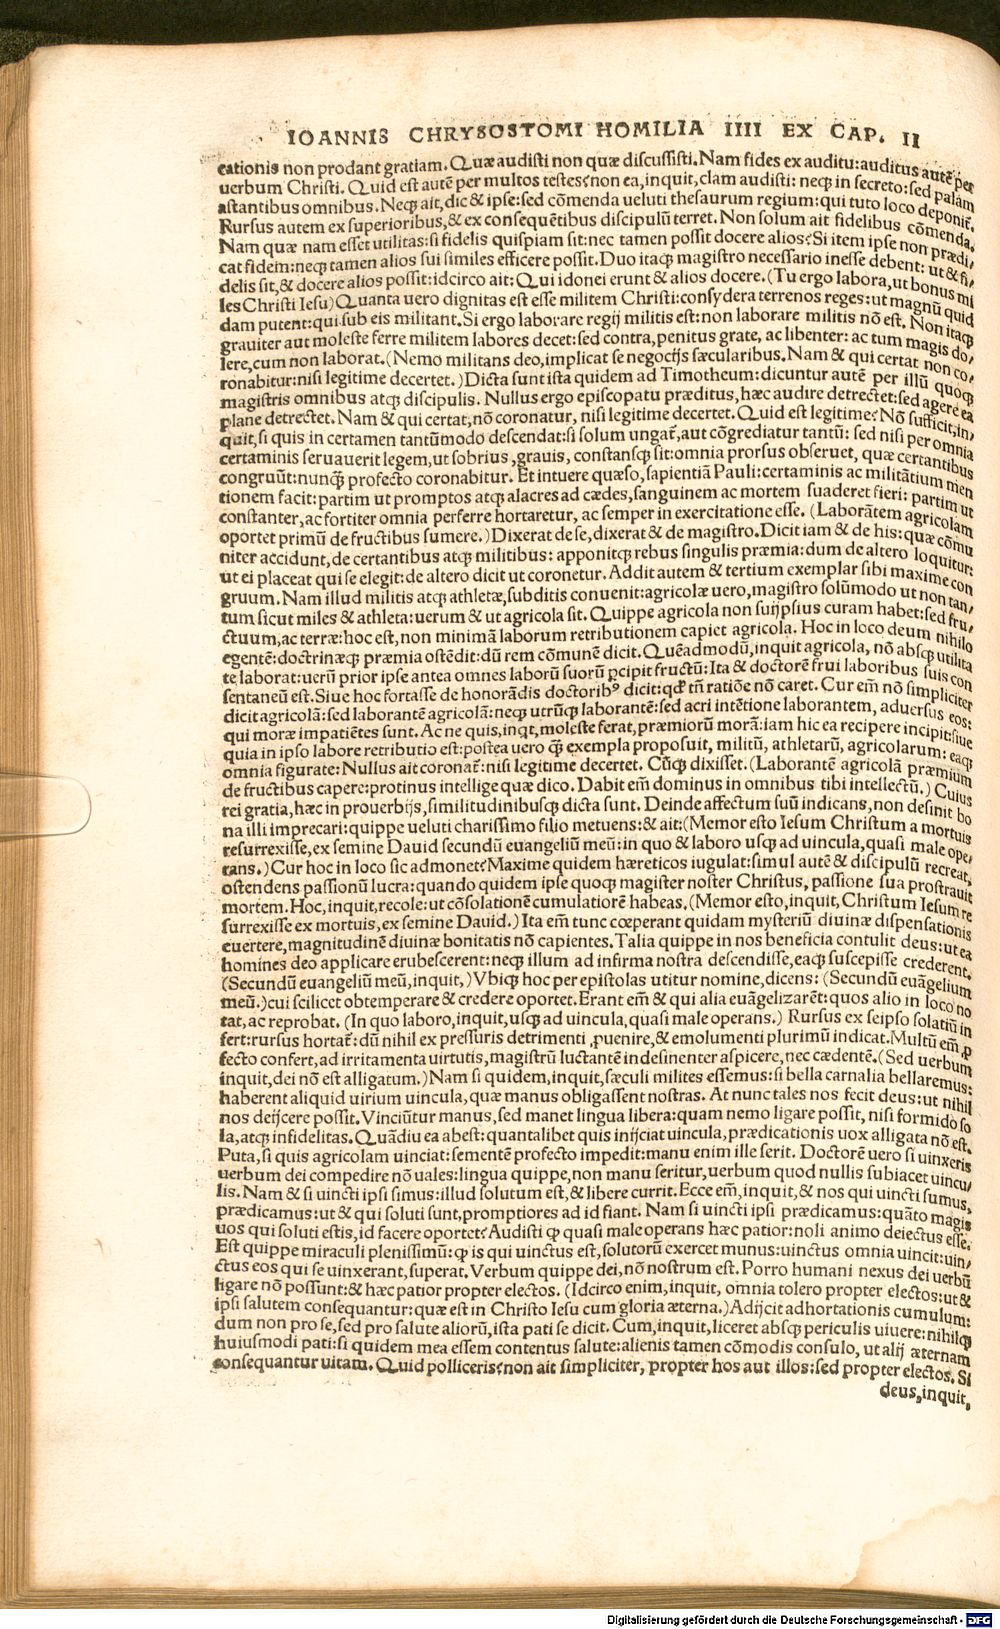 IOANNIS CHRYSOSTOMI HOMILIA IIII EX CAP. II
cationis non prodant gratiam. Quæ audisti non quæ discussisti. Nam fides ex auditu: auditus autē per
uerbum Christi. Quid est autē per multos testes? non ea, inquit, clam audisti: neqꝫ in secreto: sed palàm
astantibus omnibus. Neqꝫ ait, dic & ipse: sed cōmenda ueluti thesaurum regium: qui tuto loco deponit̄.
Rursus autem ex superioribus, & ex consequētibus discipulū terret. Non solum ait fidelibus cōmenda.
Nam quæ nam esset utilitas: si fidelis quispiam sit: nec tamen possit docere alios? Si item ipse non prædi/
cat fidem: neqꝫ tamen alios sui similes efficere possit. Duo itaqꝫ magistro necessario inesse debent: ut & fi/
delis sit, & docere alios possit: idcirco ait: Qui idonei erunt & alios docere. (Tu ergo labora, ut bonus mi
les Christi Iesu) Quanta uero dignitas est esse militem Christi: consydera terrenos reges: ut magnū quid
dam putent: qui sub eis militant. Si ergo laborare regij militis est: non laborare militis nō est. Non itaqꝫ
grauiter aut moleste ferre militem labores decet: sed contra, penitus grate, ac libenter: ac tum magis do/
lere, cum non laborat. (Nemo militans deo, implicat se negocijs sæcularibus. Nam & qui certat non co/
ronabitur: nisi legitime decertet.) Dicta sunt ista quidem ad Timotheum: dicuntur autē per illū quoqꝫ
magistris omnibus atqꝫ discipulis. Nullus ergo episcopatu præditus, hæc audire detrectet: sed agere ea
plane detrectet. Nam & qui certat, nō coronatur, nisi legitime decertet. Quid est legitime? Nō sufficit, in/
quit, si quis in certamen tantūmodo descendat: si solum ungat̄, aut cōgrediatur tantū: sed nisi per omnia
certaminis seruauerit legem, ut sobrius, grauis, constansqꝫ sit: omnia prorsus obseruet, quæ certantibus
congruūt: nunqꝫ̄ profecto coronabitur. Et intuere quæso, sapientiā Pauli: certaminis ac militātium men
tionem facit: partim ut promptos atqꝫ alacres ad cædes, sanguinem ac mortem suaderet fieri: partim ut
constanter, ac fortiter omnia perferre hortaretur, ac semper in exercitatione esse. (Laborātem agricolam
oportet primū de fructibus sumere.) Dixerat de se, dixerat & de magistro. Dicit iam & de his: quæ cōmu
niter accidunt, de certantibus atqꝫ militibus: apponitqꝫ rebus singulis præmia: dum de altero loquitur:
ut ei placeat qui se elegit: de altero dicit ut coronetur. Addit autem & tertium exemplar sibi maxime con
gruum. Nam illud militis atqꝫ athletæ, subditis conuenit: agricolæ uero, magistro solūmodo ut non tan/
tum sicut miles & athleta: uerum & ut agricola sit. Quippe agricola non suijpsius curam habet: sed fru/
ctuum, ac terræ: hoc est, non minimā laborum retributionem capiet agricola. Hoc in loco deum nihilo
egentē: doctrinæqꝫ præmia ostēdit: dū rem cōmunē dicit. Quēadmodū, inquit agricola, nō absqꝫ utilita
te laborat: uerū prior ipse antea omnes laborū suorū ꝑcipit fructū: Ita & doctorē frui laboribus suis con
sentaneū est. Siue hoc fortasse de honorādis doctoribꝰ dicit: qđ tn̄ ratiōe nō caret. Cur em̄ nō simpliciter
dicit agricolā: sed laborantē agricolā: neqꝫ utrūqꝫ laborantē: sed acri intētione laborantem, aduersus eos:
qui moræ impatiētes sunt. Ac ne quis, inqt, moleste ferat, præmiorū morā: iam hic ea recipere incipit: siue
quia in ipso labore retributio est: postea uero qꝫ̄ exempla proposuit, militū, athletarū, agricolarum: eaqꝫ
omnia figurate: Nullus ait coronat̄: nisi legitime decertet. Cūqꝫ dixisset. (Laborantē agricolā præmium
de fructibus capere: protinus intellige quæ dico. Dabit em̄ dominus in omnibus tibi intellectū.) Cuius
rei gratia, hæc in prouerbijs, similitudinibusqꝫ dicta sunt. Deinde affectum suū indicans, non desinit bo
na illi imprecari: quippe ueluti charissimo filio metuens: & ait: (Memor esto Iesum Christum a mortuis
resurrexisse, ex semine Dauid secundū euangeliū meū: in quo & laboro usqꝫ ad uincula, quasi male ope/
rans.) Cur hoc in loco sic admonet? Maxime quidem hæreticos iugulat: simul autē & discipulū recreat,
ostendens passionū lucra: quando quidem ipse quoqꝫ magister noster Christus, passione sua prostrauit
mortem. Hoc, inquit, recole: ut cōsolationē cumulatiorē habeas. (Memor esto, inquit, Christum Iesum re
surrexisse ex mortuis, ex semine Dauid.) Ita em̄ tunc cœperant quidam mysteriū diuinæ dispensationis
euertere, magnitudinē diuinæ bonitatis nō capientes. Talia quippe in nos beneficia contulit deus: ut ea
homines deo applicare erubescerent: neqꝫ illum ad infirma nostra descendisse, eaqꝫ suscepisse crederent.
(Secundū euangeliū meū, inquit,) Vbiqꝫ hoc per epistolas utitur nomine, dicens: (Secundū euāgelium
meū.) cui scilicet obtemperare & credere oportet. Erant em̄ & qui alia euāgelizarēt: quos alio in loco no
tat, ac reprobat. (In quo laboro, inquit, usqꝫ ad uincula, quasi male operans.) Rursus ex seipso solatiū in
fert: rursus hortat̄: dū nihil ex pressuris detrimenti ꝓuenire, & emolumenti plurimū indicat. Multū em̄ ꝓ
fecto confert, ad irritamenta uirtutis, magistrū luctantē indesinenter aspicere, nec cædentē. (Sed uerbum
inquit, dei nō est alligatum.) Nam si quidem, inquit, sæculi milites essemus: si bella carnalia bellaremus:
haberent aliquid uirium uincula, quæ manus obligassent nostras. At nunc tales nos fecit deus: ut nihil
nos deijcere possit. Vinciūtur manus, sed manet lingua libera: quam nemo ligare possit, nisi formido so
la, atqꝫ infidelitas. Quādiu ea abest: quantalibet quis inijciat uincula, prædicationis uox alligata nō est.
Puta, si quis agricolam uinciat: sementē profecto impedit: manu enim ille serit. Doctorē uero si uinxeris
uerbum dei compedire nō uales: lingua quippe, non manu seritur, uerbum quod nullis subiacet uincu/
lis. Nam & si uincti ipsi simus: illud solutum est, & libere currit. Ecce em̄, inquit, & nos qui uincti sumus,
prædicamus: ut & qui soluti sunt, promptiores ad id fiant. Nam si uincti ipsi prædicamus: quāto magis
uos qui soluti estis, id facere oportet? Audisti ꝙ quasi male operans hæc patior: noli animo deiectus esse.
Est quippe miraculi plenissimū: ꝙ is qui uinctus est, solutorū exercet munus: uinctus omnia uincit: uin/
ctus eos qui se uinxerant, superat. Verbum quippe dei, nō nostrum est. Porro humani nexus dei uerbū
ligare nō possunt: & hæc patior propter electos. (Idcirco enim, inquit, omnia tolero propter electos: ut &
ipsi salutem consequantur: quæ est in Christo Iesu cum gloria æterna.) Adijcit adhortationis cumulum:
dum non pro se, sed pro salute aliorū, ista pati se dicit. Cum, inquit, liceret absqꝫ periculis uiuere: nihilqꝫ
huiusmodi pati: si quidem mea essem contentus salute: alienis tamen cōmodis consulo, ut alij æternam
consequantur uitam. Quid polliceris? non ait simpliciter, propter hos aut illos: sed propter electos. Si
deus, inquit,
Digitalisierung gefördert durch die Deutsche Forschungsgemeinschaft - DFG